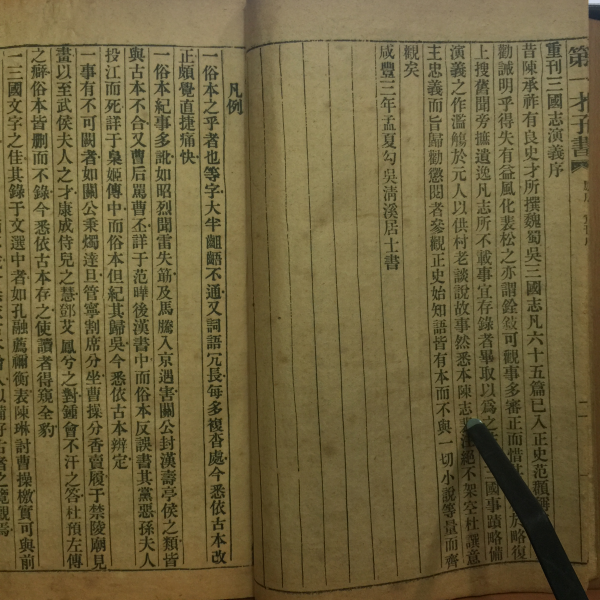 第一才子書
重刊三國志演義序
昔陳承祚有良史才所撰魏蜀吳三國志凡六十五篇已入正史范頵
勸誡明乎得失有益風化裴松之亦謂銓敘可觀事多審正而惜其於略復
上搜舊聞旁摭遺逸凡志所不載事宜存錄者畢取以爲之國事蹟略備
演義之作濫觴於元人以供村老談說故事然悉本陳志絕不架空杜譔意
主忠義而旨歸勸懲閱者參觀正史始知語皆有本而不與一切小說等量而齊
觀矣
咸豐三年孟夏勾吳清溪居士書
凡例
一俗本之乎者也等字大半齟齬不通又詞語冗長每多複沓處今悉依古本改
正頗覺直捷痛快
一俗本紀事多訛如昭烈聞雷失筯及馬騰入京遇害關公封漢壽亭侯之類皆
與古本不合又曹后罵曹丕詳于范曄後漢書中而俗本反誤書其黨惡孫夫人
投江而死詳于梟姬傳中而俗本但紀其歸吳今悉依古本辨定
一事有不可闕者如關公秉燭達旦管寧割席分坐曹操分香賣履于禁陵廟見
畫以至武侯夫人之才康成侍兒之慧鄧艾鳳兮之對鍾會不汗之答杜預左傳
之癖俗本皆刪而不錄今悉依古本存之使讀者得窺全豹
一三國文字之佳其錄于文選中者如孔融薦禰衡表陳琳討曹操檄實可與前